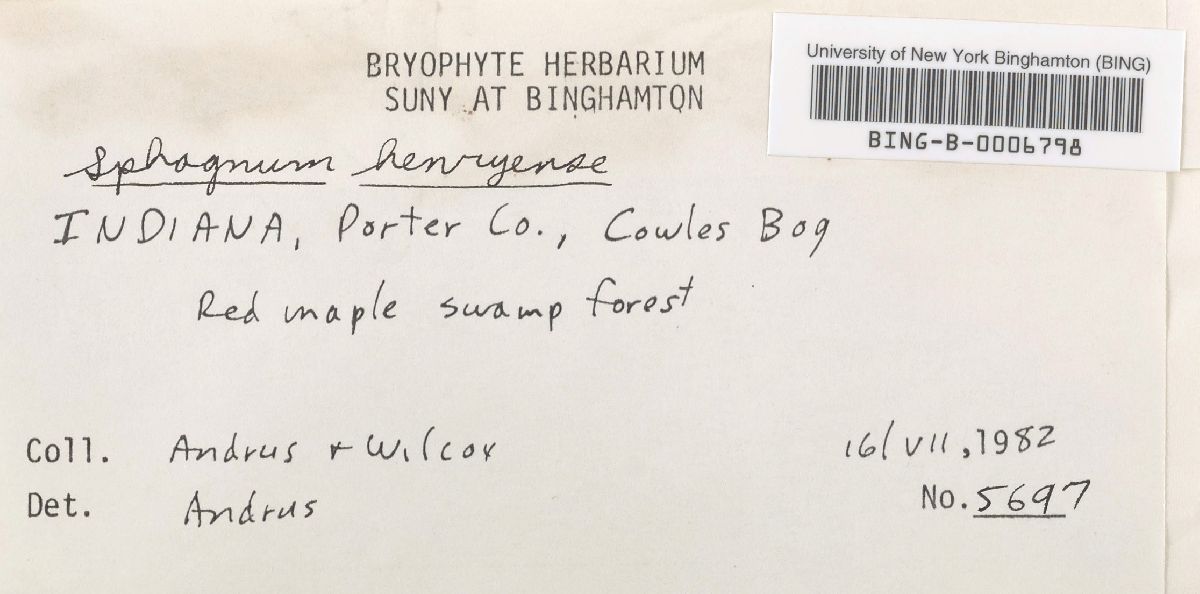 BRYOPHYTE HERBARIUM
SUNY AT BINGHAMTON
University of New York Binghamton (BING)
BING-B-0006798
Sphagnum henryense
INDIANA, Porter Co., Cowles Bog
Red maple swamp forest
Coll. Andrus + Wilcox 16/VII, 1982
Det. Andrus No. 5697